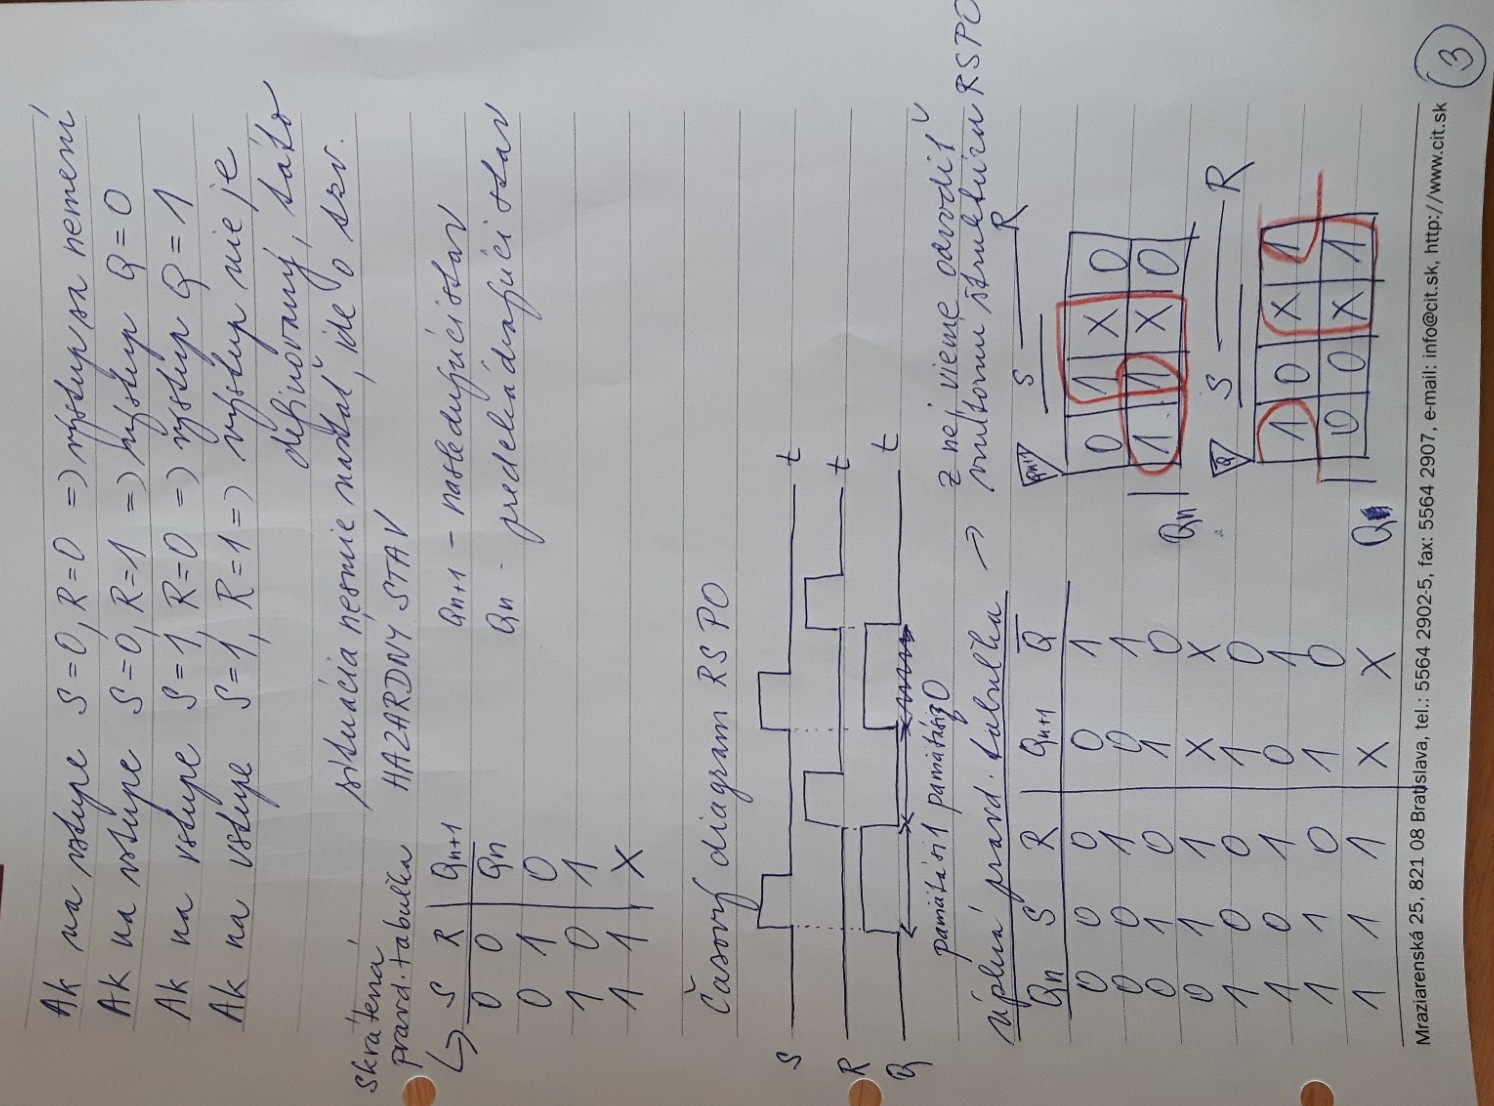 Ak na vstupe S=0, R=0 => výstup sa nemení
Ak na vstupe S=0, R=1 => výstup Q=0
Ak na vstupe S=1, R=0 => výstup Q=1
Ak na vstupe S=1, R=1 => výstup nie je
definovaný, táto
situácia nesmie nastať, ide o tzv.
HAZARDNÝ STAV
skrátená
pravd. tabuľka
S R Qn+1
0 0 Qn
0 1 0
1 0 1
1 1 X
Qn+1 - nasledujúci stav
Qn - predchádzajúci stav
Časový diagram RS PO
S t
R t
Q t
pamätá si 1 pamätá si 0
úplná pravd. tabuľka → z nej vieme odvodiť
vnútornú štruktúru RSPO
Qn S R Qn+1 Q̅
0 0 0 0 1
0 0 1 0 1
0 1 0 1 0
0 1 1 X X
1 0 0 1 0
1 0 1 0 1
1 1 0 1 0
1 1 1 X X
Qn+1 S R
0 1 X 0
Qn 1 1 X 0
Q̅ S R
1 0 X 1
Q 0 0 X 1
Mraziarenská 25, 821 08 Bratislava, tel.: 5564 2902-5, fax: 5564 2907, e-mail: info@cit.sk, http://www.cit.sk
3